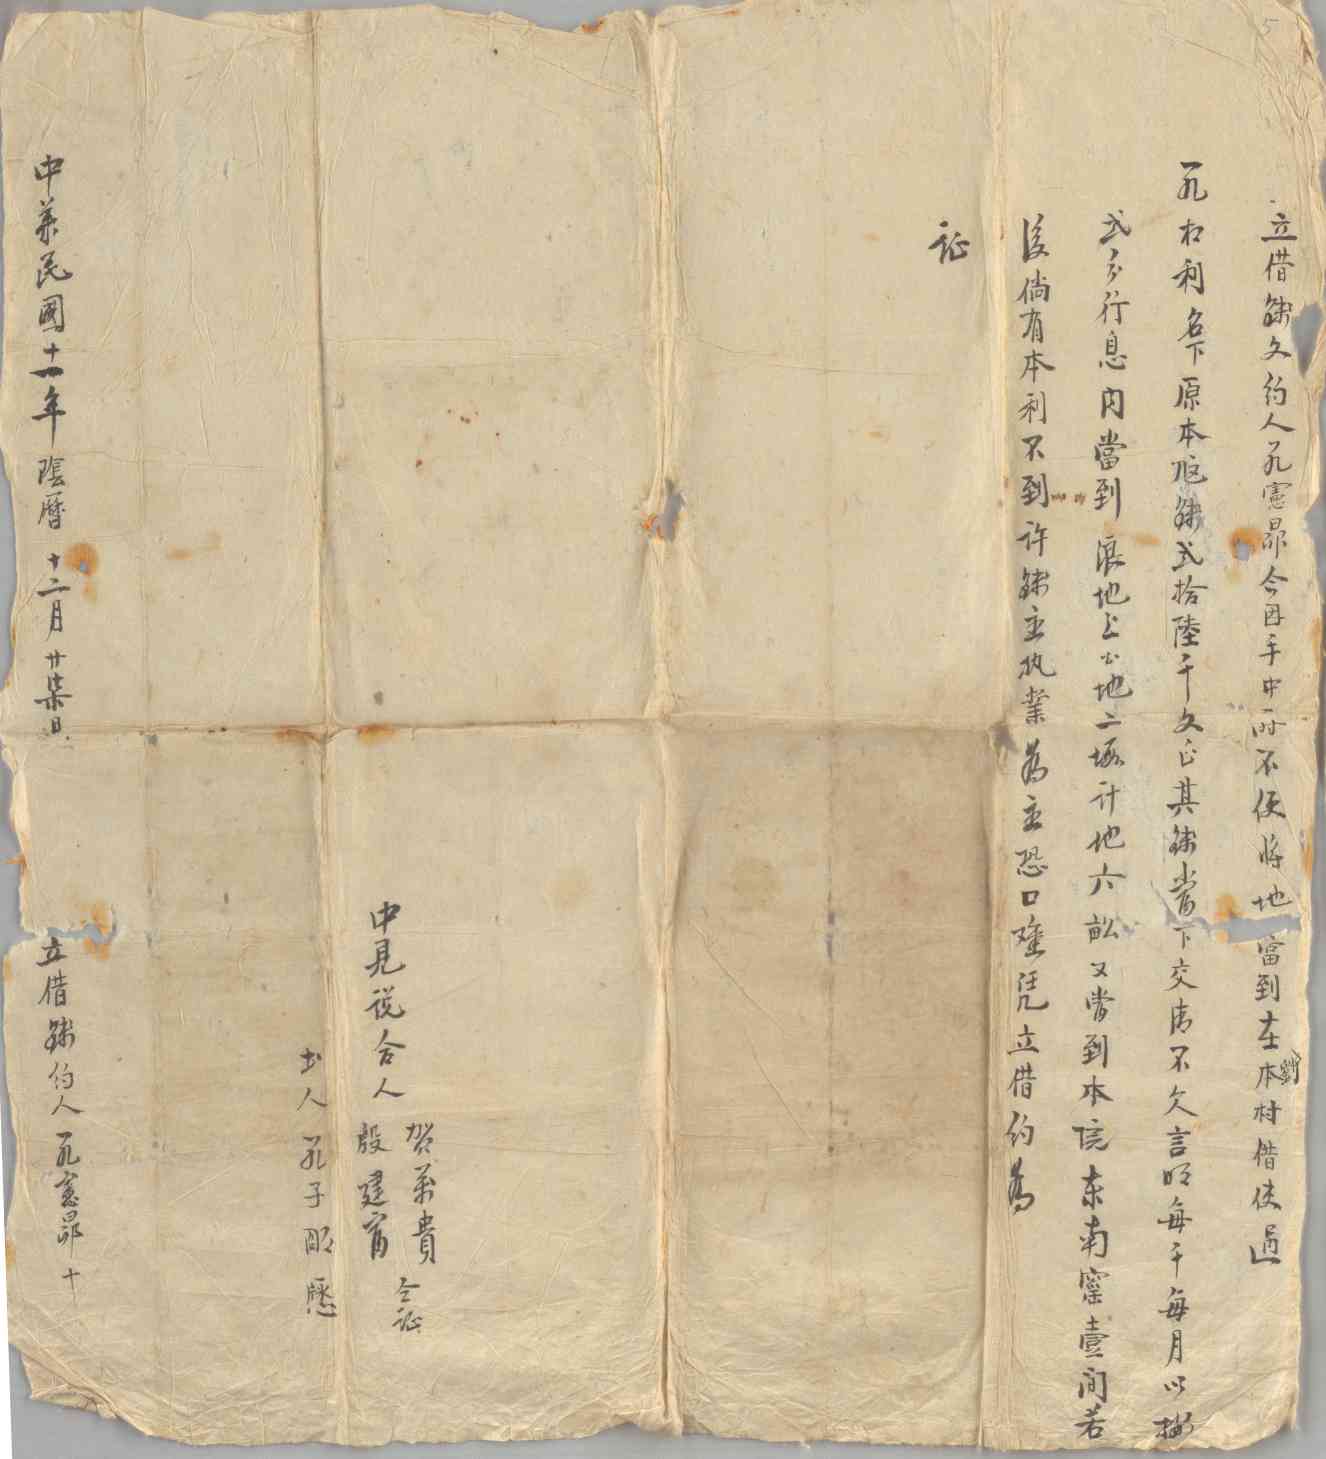 5
立借錢文約人孔憲昴今因手中一時不便將地當到在本劉村借使過
孔相利名下原本厎錢弍拾陸千文正其錢當下交清不欠言明每千每月以
弍分行息內當到浪地上公地二塅計地六畝又當到本院东南窰壹间若
後倘有本利不到许錢主执業為主恐口难凭立借约為
証
中見说合人 賀萬貴 殷建富 仝証
书人孔子明
中華民國十一年陰曆十二月廿柒日 立借錢约人孔憲昴十